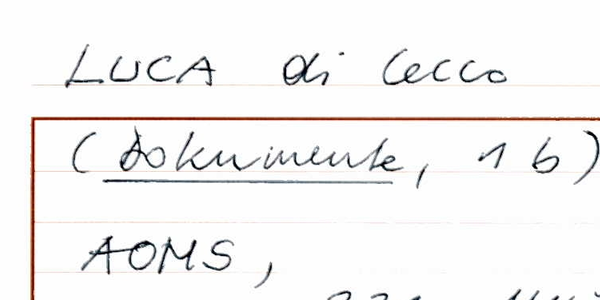 LUCA di Cecco
(Dokumente, 1 b)
AOMS,